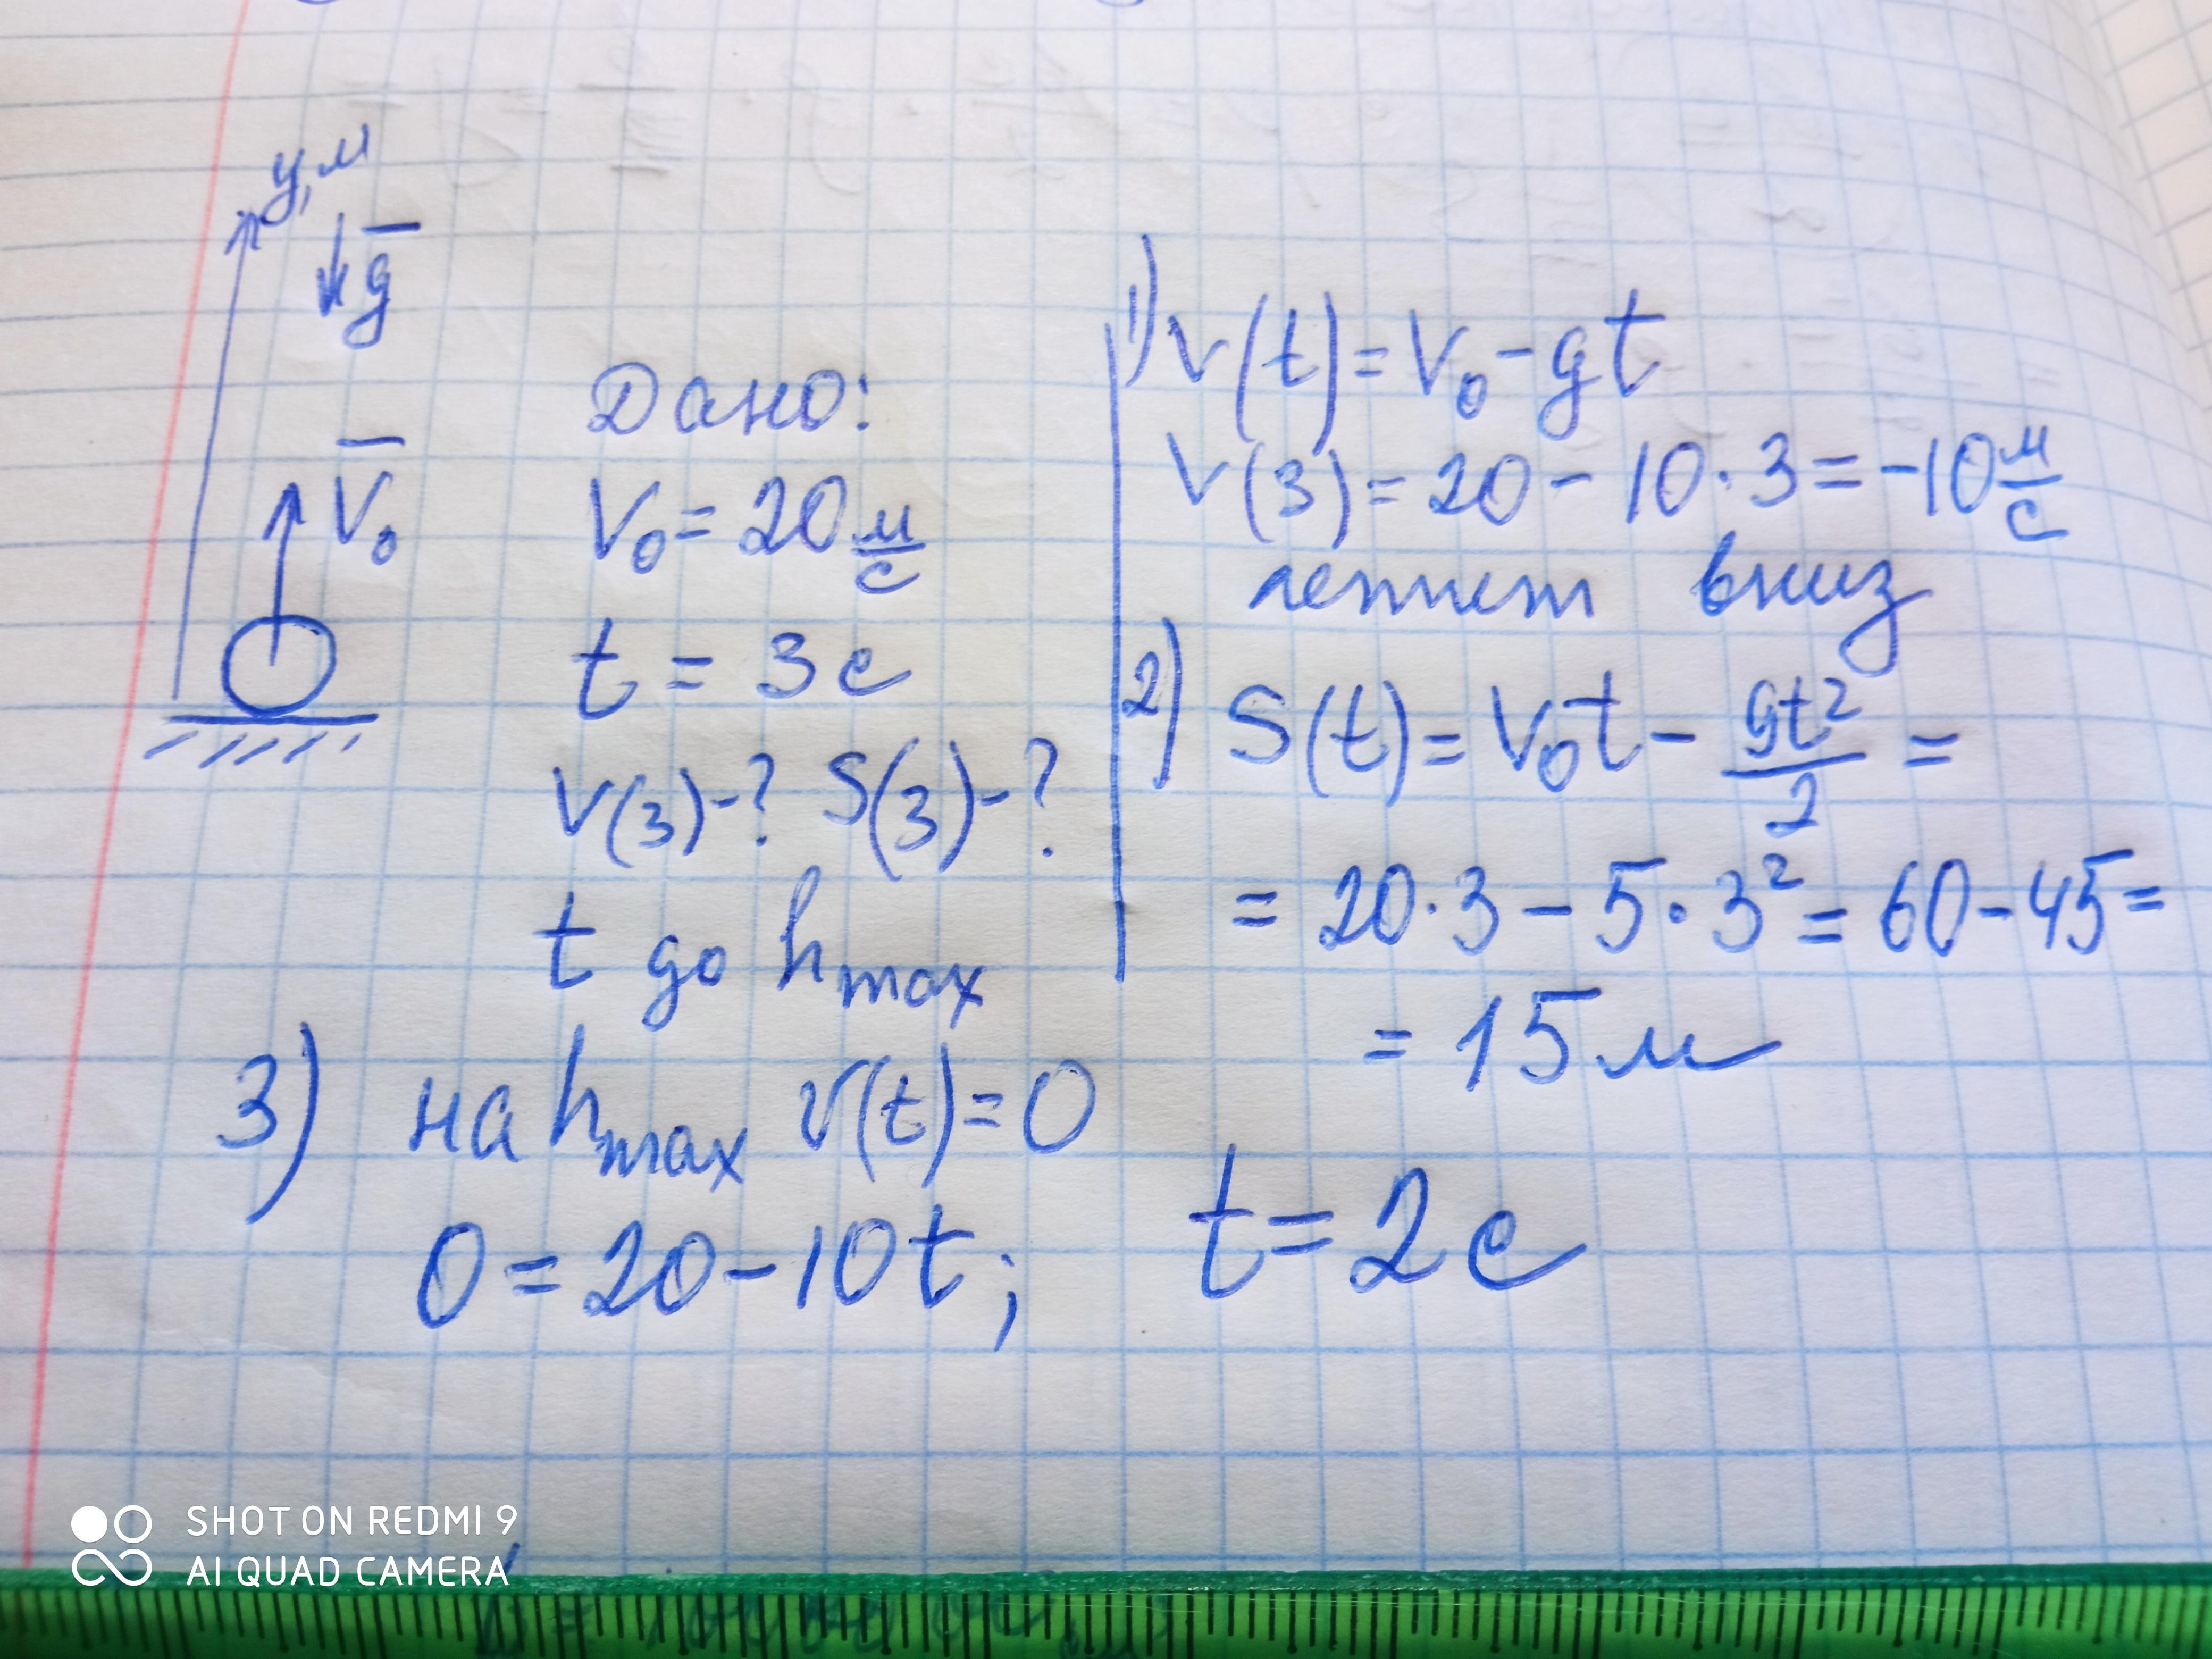 y, м
g
V₀
Дано:
V₀ = 20 м/с
t = 3 с
V(3) - ? S(3) - ?
t до hmax
1) V(t) = V₀ - gt
V(3) = 20 - 10 · 3 = -10 м/с
летит вниз
2) S(t) = V₀t - gt²/2 =
= 20 · 3 - 5 · 3² = 60 - 45 =
= 15 м
3) на hmax V(t) = 0
0 = 20 - 10t; t = 2 с
SHOT ON REDMI 9
AI QUAD CAMERA